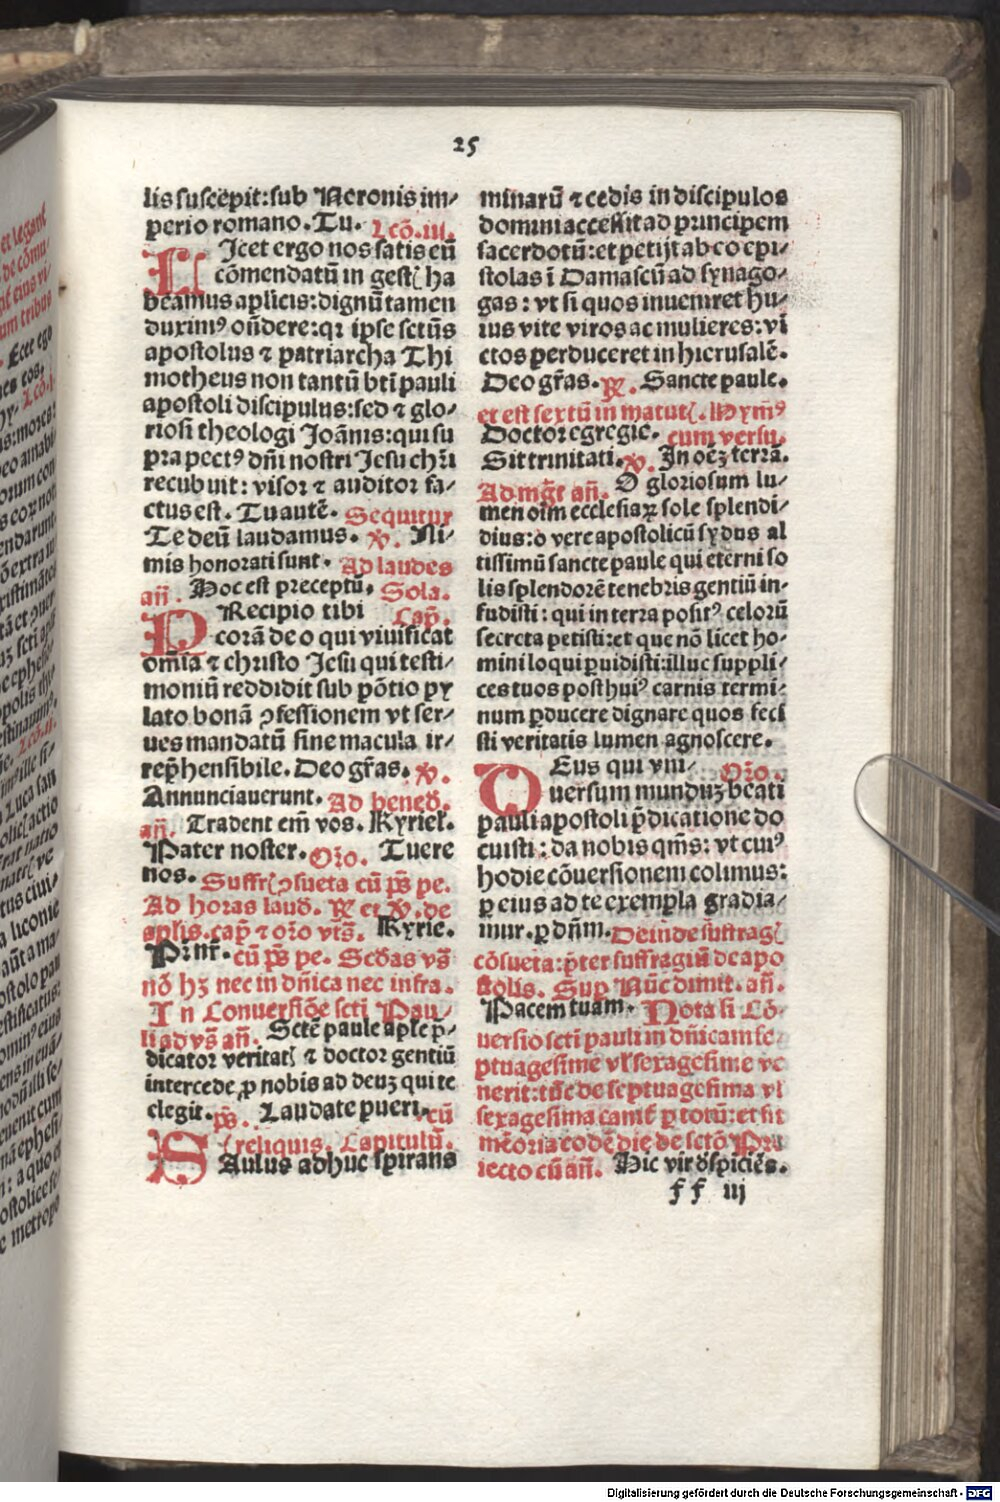 25
lis suscepit: sub Neronis im⸗
perio romano. Tu. Lcō. iii.
LIcet ergo nos satis eū
cōmendatū in gestꝭ ha
beamus aplicis: dignū tamen
duximꝰ oñdere: qꝛ ipse sctūs
apostolus ⁊ patriarcha Thi
motheus non tantū bti pauli
apostoli discipulus: sed ⁊ glo⸗
riosi theologi Joānis: qui su
pra pectꝰ dñi nostri Jesu chꝛi
recubuit: visor ⁊ auditor fa⸗
ctus est. Tu autē. Sequitur
Te deū laudamus. ℣. Ni⸗
mis honorati sunt. Ad laudes
añ. Hoc est preceptū. Sola.
PRecipio tibi Cap̄.
corā deo qui viuificat
omīa ⁊ christo Jesu qui testi⸗
moniū reddidit sub pōtio py
lato bonā ꝯfessionem vt ser⸗
ues mandatū sine macula ir⸗
rep̄hensibile. Deo gr̄as. ℣.
Annunciauerunt. Ad bened̄.
añ. Tradent em̄ vos. Kyriel.
Pater noster. Oꝛo. Tuere
nos. Suffrꝭ ꝯsueta cū p̄s pe.
Ad horas laud̄. ℟ et ℣. de
aplis. cap̄ ⁊ oꝛo vts̄. Kyrie.
Pr̄ nr̄. cū p̄s pe. Scd̄as vs̄
nō hꝫ nec in dn̄ica nec infra.
In Conuersiōe scti Pau⸗
li ad vs̄ añ. Sctē paule aplē p̄⸗
dicator veritatꝭ ⁊ doctor gentiū
intercede ꝓ nobis ad deuꝫ qui te
elegit. p̄s. Laudate pueri. cū
(reliquis. Capitulū.
SAulus adhuc spirans
minarū ⁊ cedis in discipulos
domini accessit ad principem
sacerdotū: et petijt ab eo epi⸗
stolas ī Damascū ad synago⸗
gas: vt si quos inueniret hu⸗
ius vite viros ac mulieres: vī
ctos perduceret in hierusalē.
Deo gr̄as. ℟. Sancte paule.
et est sextū in matutꝭ. Hymꝰ
Doctor egregie. cum versu.
Sit trinitati. ℣. In oēꝫ terrā.
Ad mgt̄ añ. O gloriosum lu⸗
men oīm ecclesiaꝝ sole splendi⸗
dius: o vere apostolicū sydus al
tissimū sancte paule qui eterni so
lis splendorē tenebris gentiū in⸗
fudisti: qui in terra positꝰ celorū
secreta petisti: et que nō licet ho⸗
mini loqui ꝑuidisti: illuc suppli⸗
ces tuos post huiꝰ carnis termi⸗
num ꝑducere dignare quos feci
sti veritatis lumen agnoscere.
DEus qui vni⸗ Oꝛo.
uersum munduꝫ beati
pauli apostoli p̄dicatione do
cuisti: da nobis qm̄s: vt cuiꝰ
hodie cōuersionem colimus:
ꝑ eius ad te exempla gradia⸗
mur. ꝑ dn̄m. Deinde suffragꝭ
cōsueta: p̄ter suffragiū de apo
stolis. Sup Nūc dimit. añ.
Pacem tuam. Nota si Cō⸗
uersio scti pauli in dn̄icam se⸗
ptuagesime vl̄ sexagesime ve
nerit: tūc de septuagesima vl̄
sexagesima cantet̄ ꝑ totū: et fit
mēoria eodē die de sctō Pro
iecto cū añ. Hic vir d̄spiciēs.
ff iij
Digitalisierung gefördert durch die Deutsche Forschungsgemeinschaft - DFG